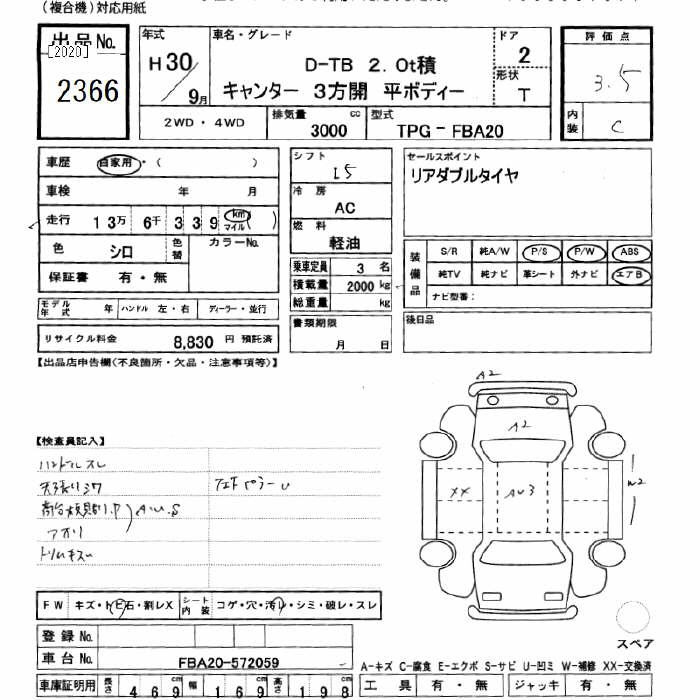 (複合機)対応用紙
出品No.
[2020]
2366
年式
H30
9月
車名・グレード
D-TB 2.0t積
キャンター 3方開 平ボディー
ドア
2
形状
T
評価点
3.5
内装
C
2WD・4WD
排気量
3000 cc
型式
TPG-FBA20
車歴 自家用・( )
車検 年 月
走行 13万 6千 3 3 9 km マイル ( )
色 シロ 色替 カラーNo.
保証書 有・無
モデル年式 年 ハンドル 左・右 ディーラー・並行
リサイクル料金 8,830 円 預託済
シフト
I5
冷房
AC
燃料
軽油
乗車定員 3 名
積載量 2000 kg
総重量 kg
書類期限
月 日
セールスポイント
リアダブルタイヤ
装備品
S/R 純A/W P/S P/W ABS
純TV 純ナビ 革シート 外ナビ エアB
ナビ型番:
後日品
【出品店申告欄(不良箇所・欠品・注意事項等)】
【検査員記入】
ハンドルスレ
天張りシワ
A.U.S
アオリ
トリムキズ
A2
A2
XX
AU3
W2
スペア
FW キズ・トビ石・割レX シート内装 コゲ・穴・汚レ・シミ・破レ・スレ
登録No.
車台No. FBA20-572059
車庫証明用 長さ 469 cm 幅 169 cm 高さ 198 cm
A-キズ C-腐食 E-エクボ S-サビ U-凹ミ W-補修 XX-交換済
工具 有・無 ジャッキ 有・無